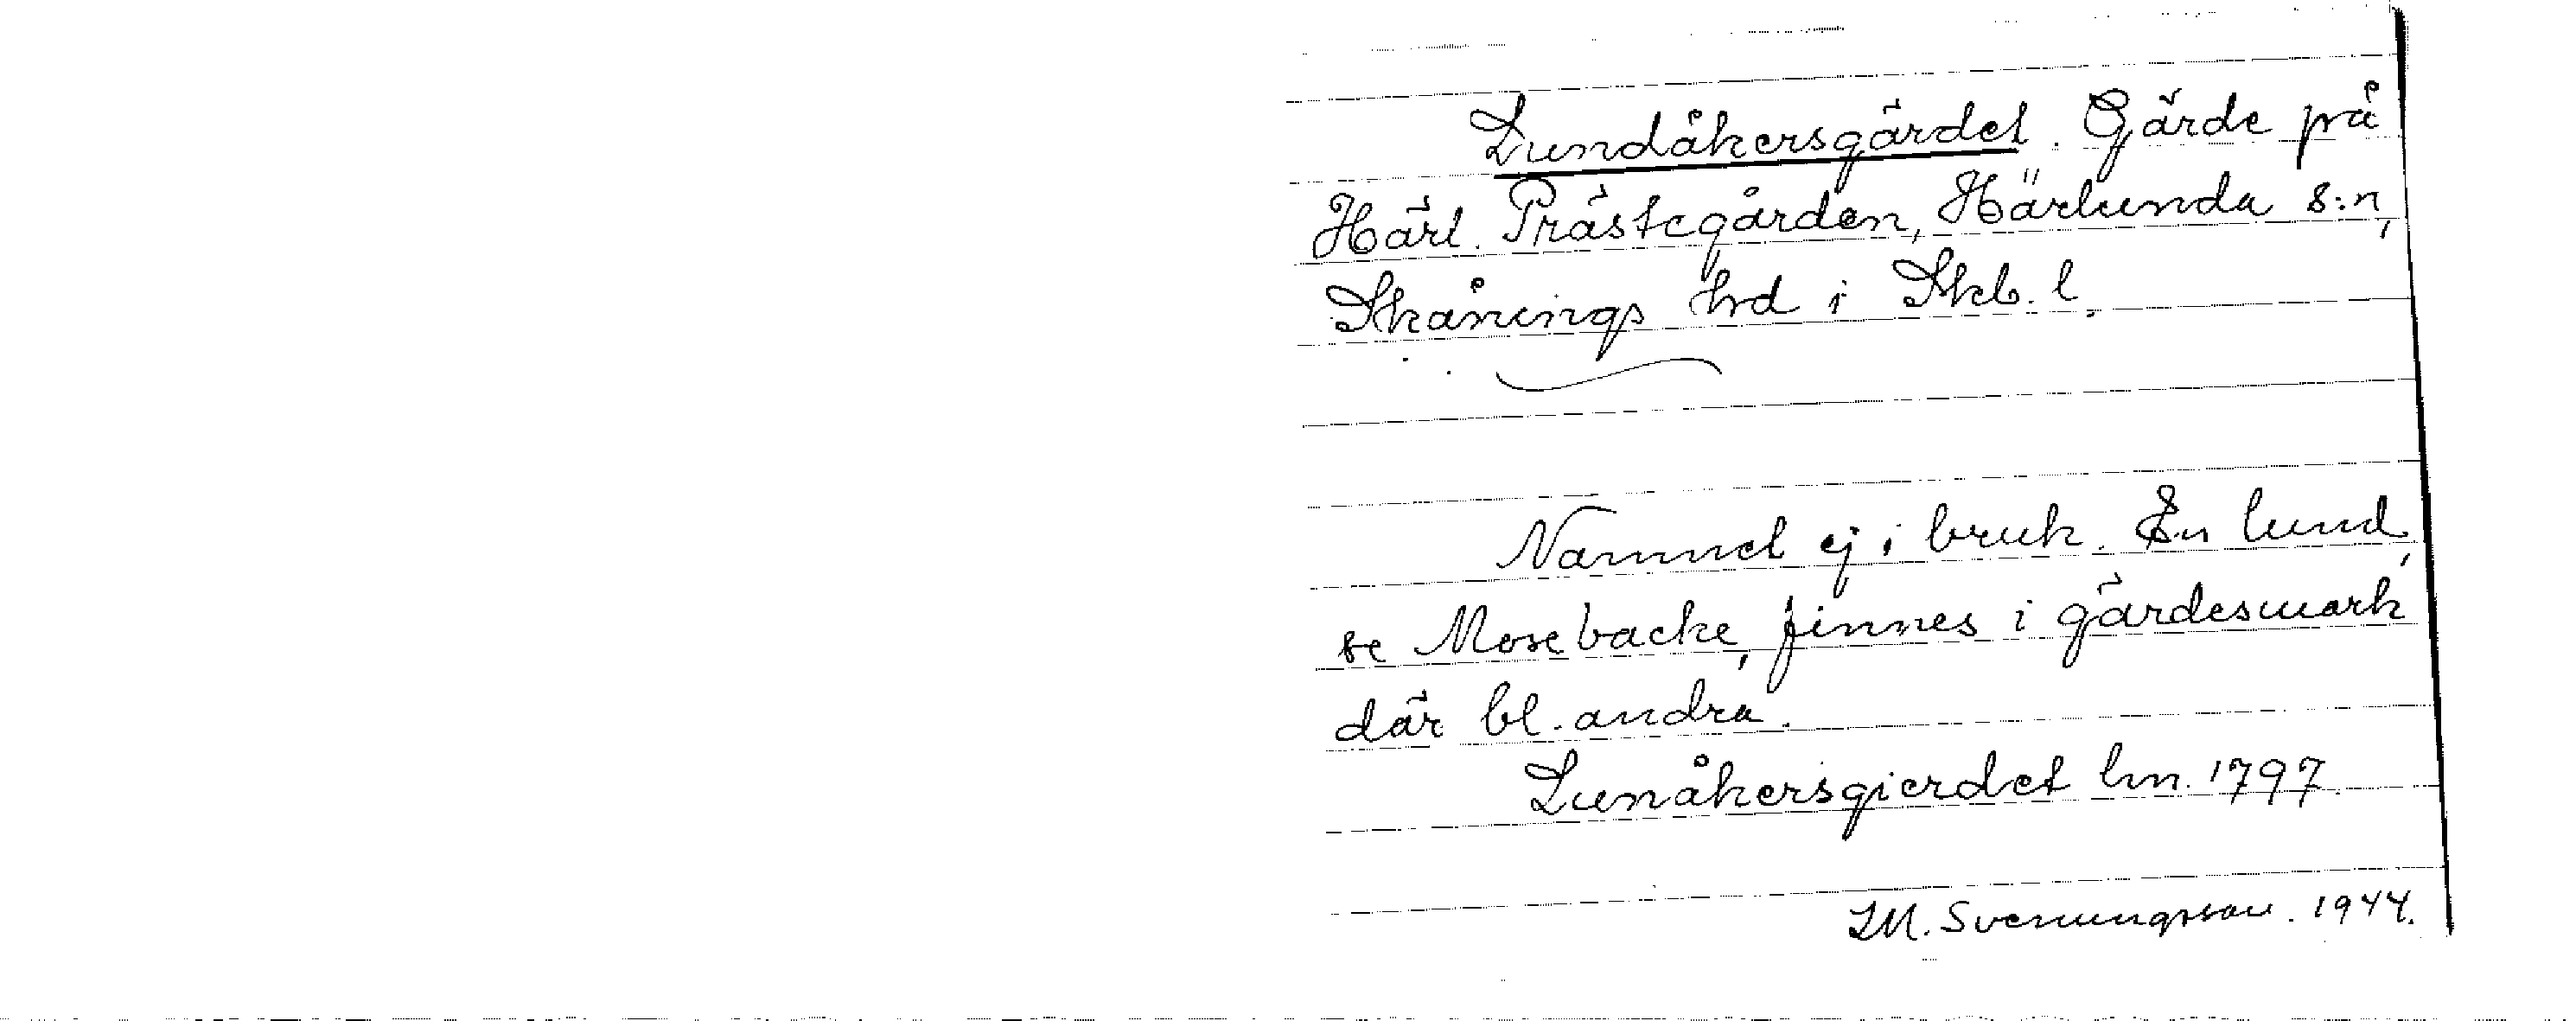 Lundåkersgärdet. Gärde på
Härl. Prästegården, Härlunda s:n,
Skånings hd i Skb. l.
Namnet ej i bruk. En lund,
se Mosebacke, finnes i gärdesmark
där bl. andra.
Lunåkersgierdet lm. 1797.
I.M. Svenungsson. 1944.